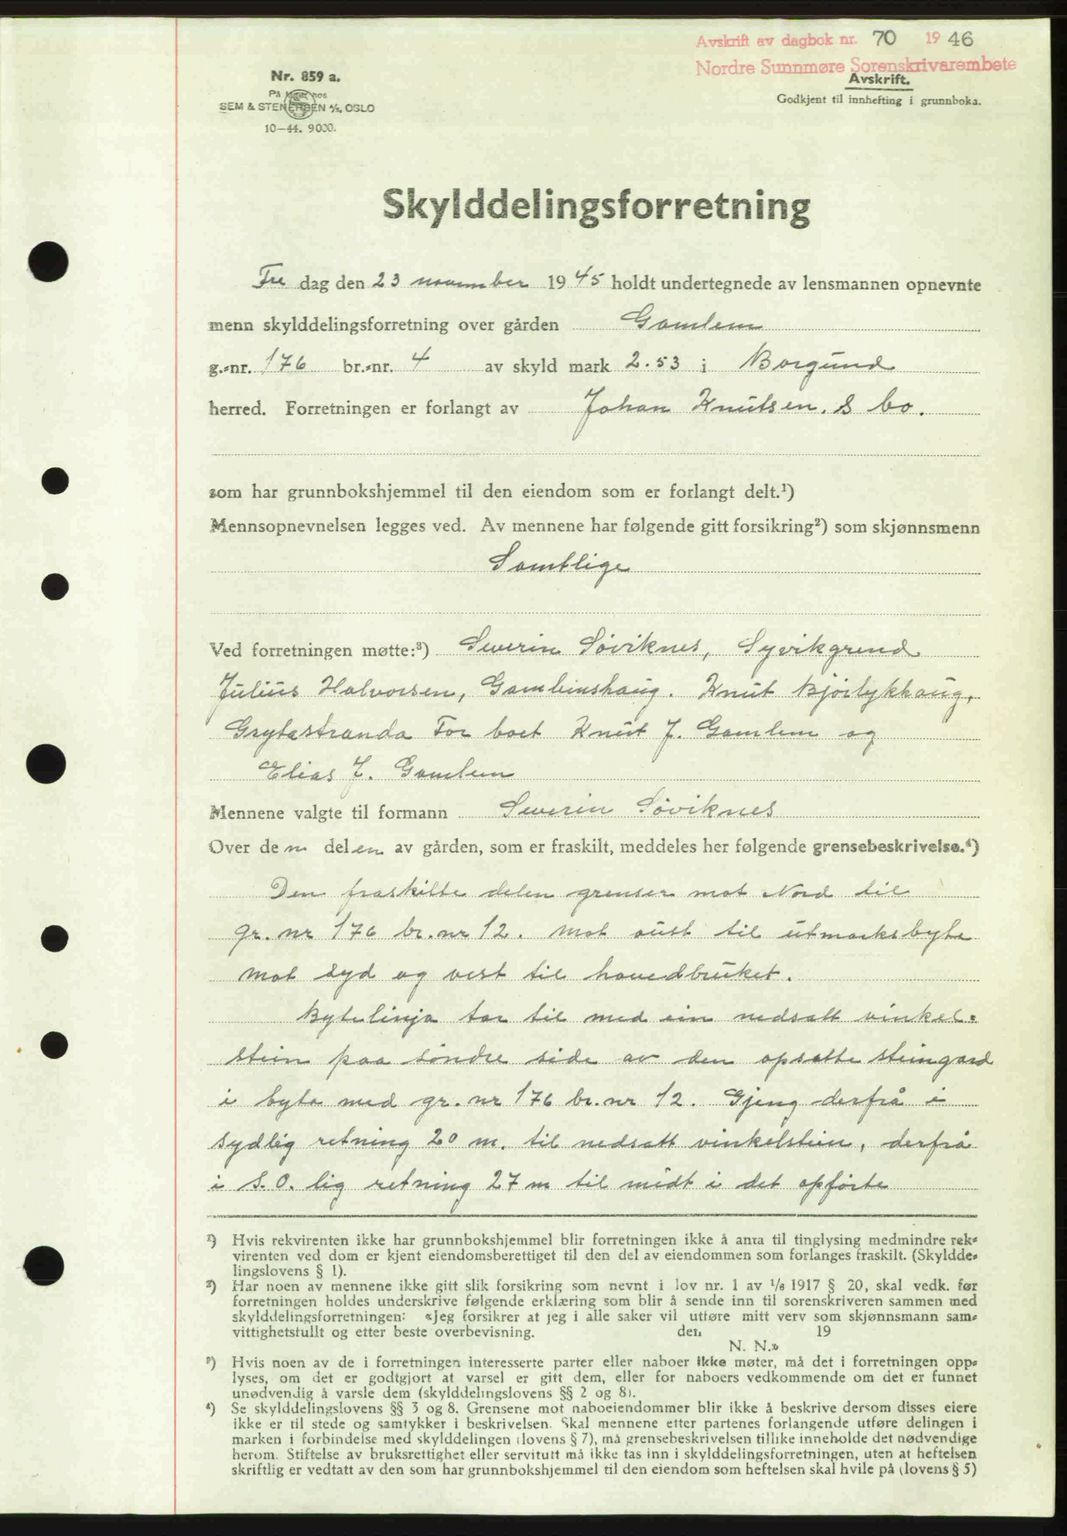 Avskrift av dagbok nr. 70 1946
Nordre Sunnmøre Sorenskrivarembete
Nr. 859 a.
På lager hos
SEM & STENERSEN A/S, OSLO
10-44. 9000.
Avskrift.
Godkjent til innhefting i grunnboka.
Skylddelingsforretning
Fre dag den 23 november 1945 holdt undertegnede av lensmannen opnevnte
menn skylddelingsforretning over gården Gamlem
g.-nr. 176 br.-nr. 4 av skyld mark 2.53 i Borgund
herred. Forretningen er forlangt av Johan Knutsen. S bo.
som har grunnbokshjemmel til den eiendom som er forlangt delt.¹)
Mennsopnevnelsen legges ved. Av mennene har følgende gitt forsikring²) som skjønnsmenn
Samtlige
Ved forretningen møtte:³) Severin Søviknes, Syvikgrend
Julius Halvorsen, Gamlemshaug. Knut Bjørlykhaug,
Grytastranda For boet Knut J. Gamlem og
Elias J. Gamlem
Mennene valgte til formann Severin Søviknes
Over den delen av gården, som er fraskilt, meddeles her følgende grensebeskrivelse.⁴)
Den fraskilte delen grenser mot Nord til
gr. nr 176 br. nr 12. mot aust til utmarksbyte
mot syd og vest til hovedbruket.
Bytelinja tar til med ein nedsatt vinkel-
stein paa søndre side av den opsatte steingard
i byte med gr. nr 176 br. nr 12. Gjeng derfrå i
sydlig retning 20 m. til nedsatt vinkelstein, derfrå
i S.O. lig retning 27 m til midt i det opførte
¹) Hvis rekvirenten ikke har grunnbokshjemmel blir forretningen ikke å anta til tinglysing medmindre rek-
virenten ved dom er kjent eiendomsberettiget til den del av eiendommen som forlanges fraskilt. (Skyldde-
lingslovens § 1).
²) Har noen av mennene ikke gitt slik forsikring som nevnt i lov nr. 1 av 1/6 1917 § 20, skal vedk. før
forretningen holdes underskrive følgende erklæring som blir å sende inn til sorenskriveren sammen med
skylddelingsforretningen: «Jeg forsikrer at jeg i alle saker vil utføre mitt verv som skjønnsmann sam-
vittighetsfullt og etter beste overbevisning. den 19
N. N.»
³) Hvis noen av de i forretningen interesserte parter eller naboer ikke møter, må det i forretningen opp-
lyses, om det er godtgjort at varsel er gitt dem, eller for naboers vedkommende om det er funnet
unødvendig å varsle dem (skylddelingslovens §§ 2 og 8).
⁴) Se skylddelingslovens §§ 3 og 8. Grensene mot naboeiendommer blir ikke å beskrive dersom disses eiere
ikke er til stede og samtykker i beskrivelsen. Skal mennene etter partenes forlangende utføre delingen i
marken i forbindelse med skylddelingen (lovens § 7), må grensebeskrivelsen tillike inneholde det nødvendige
herom. Stiftelse av bruksrettighet eller servitutt må ikke tas inn i skylddelingsforretningen, uten at heftelsen
skriftlig er vedtatt av den som har grunnbokshjemmel til den eiendom som heftelsen skal hvile på (lovens § 5)